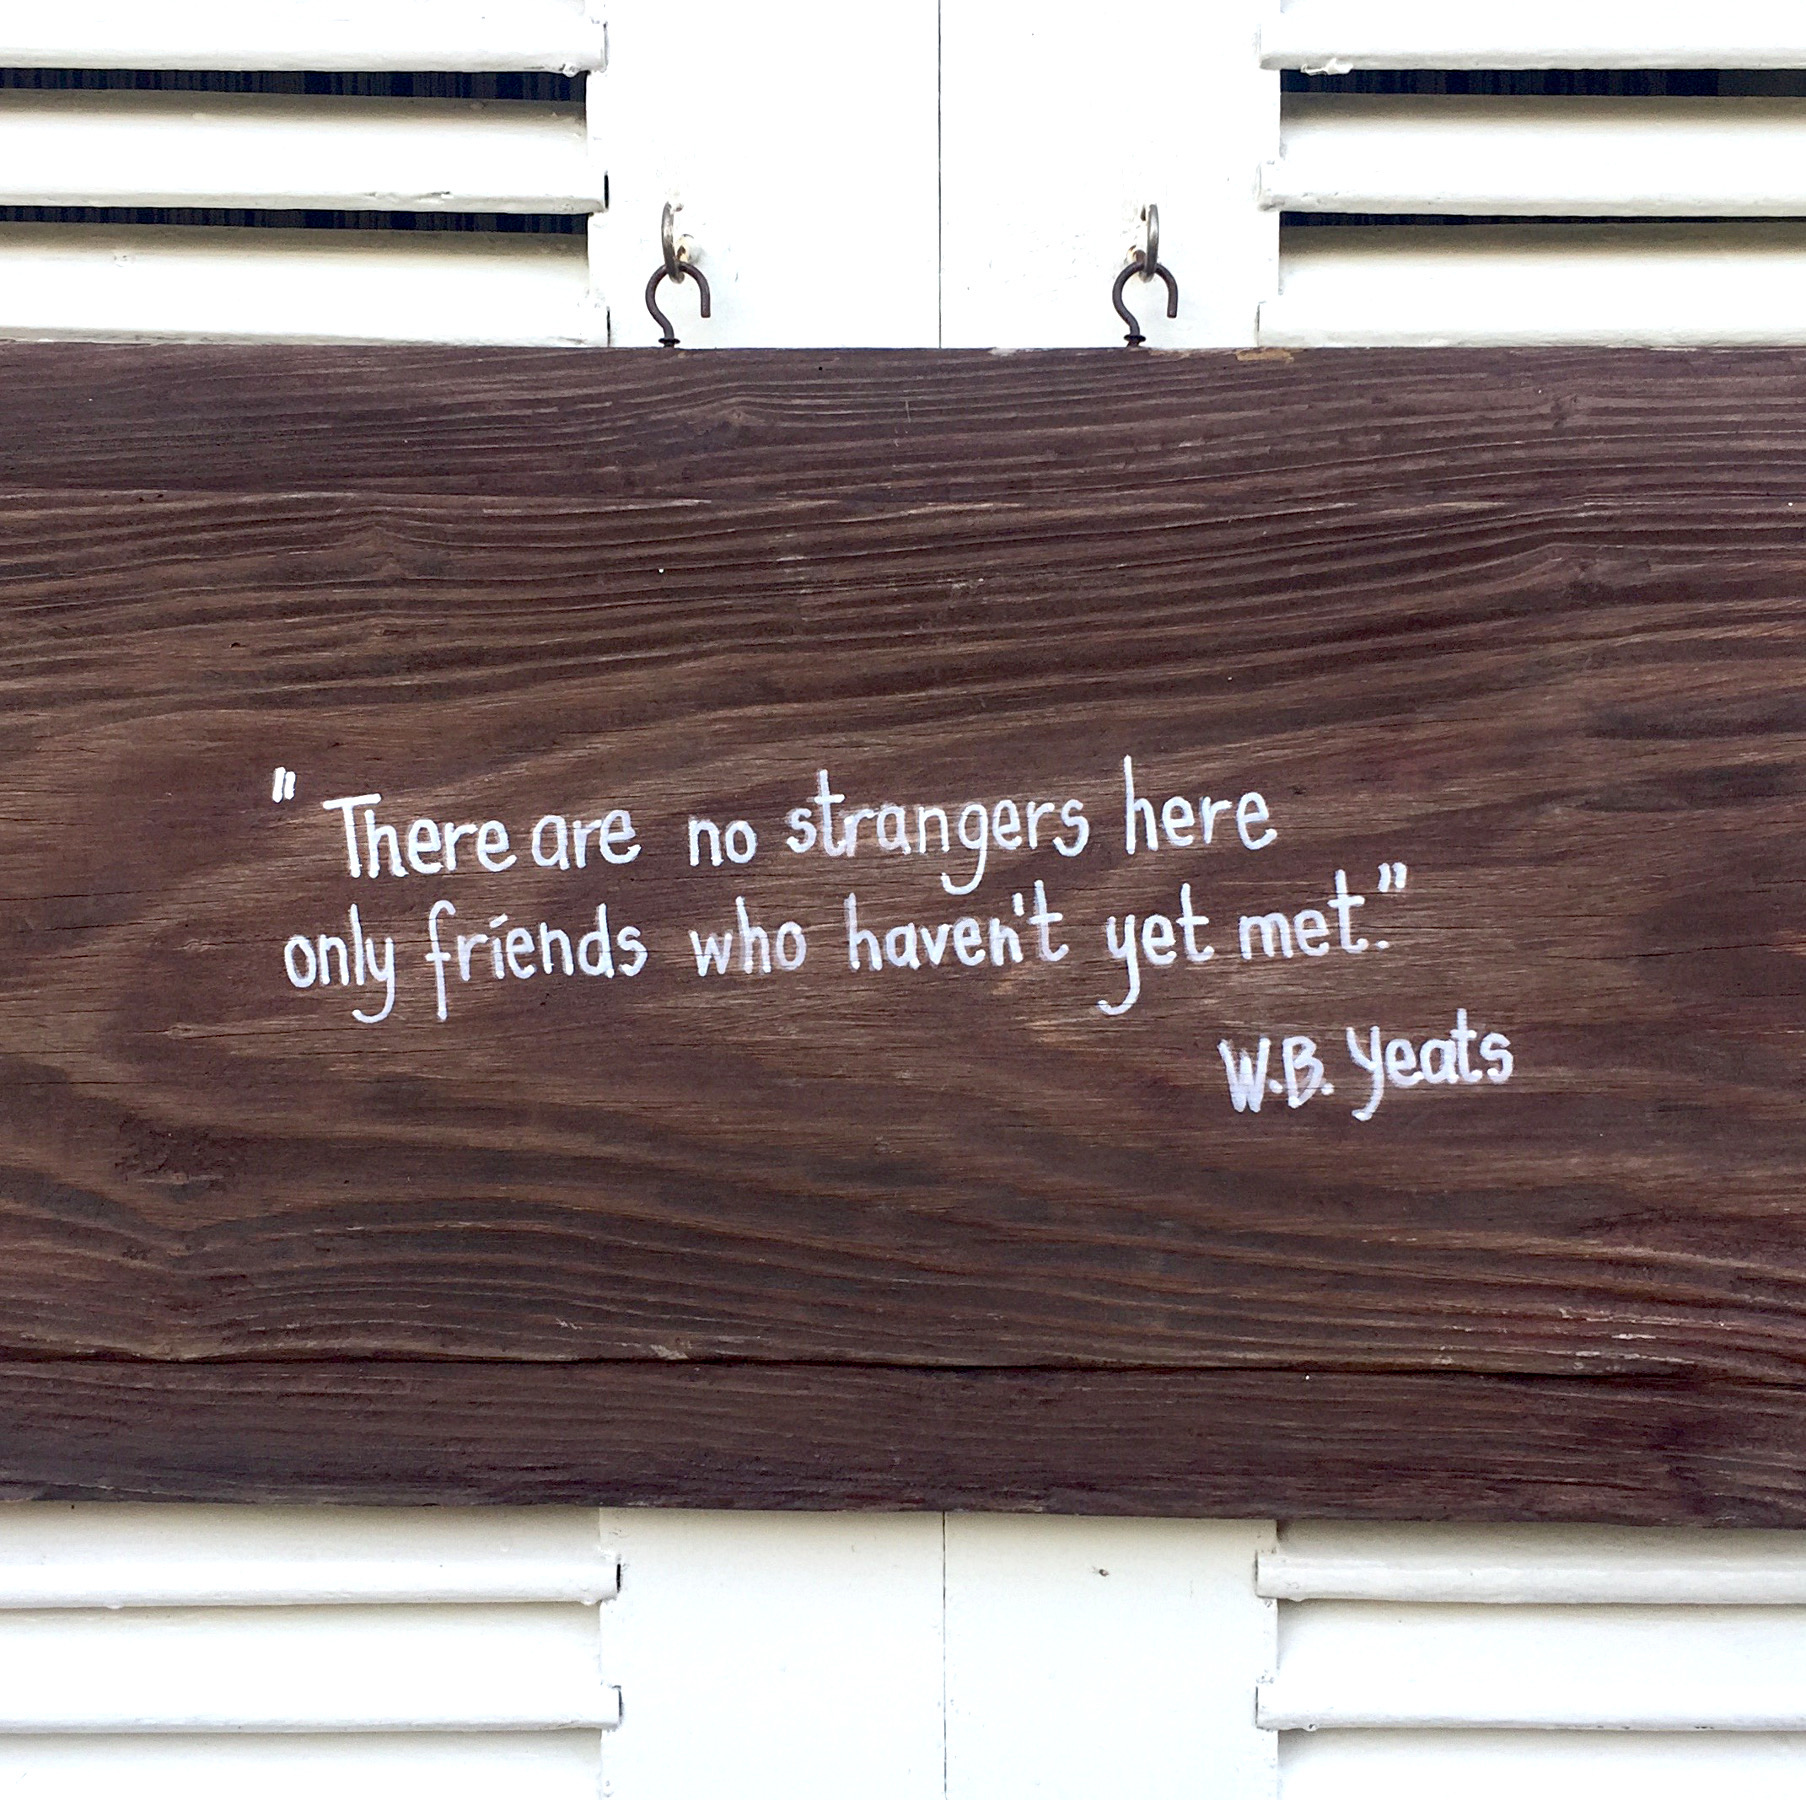 "There are no strangers here
only friends who haven't yet met."
W.B. Yeats